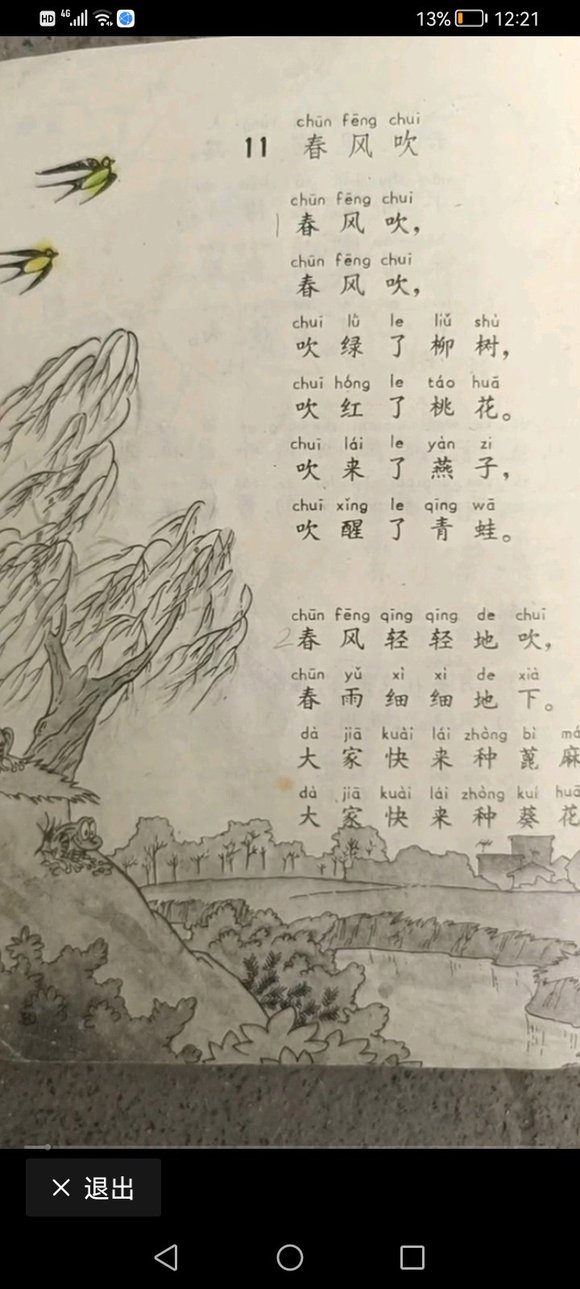 HD 4G 13% 12:21
chūn fēng chuī
11 春风吹
chūn fēng chuī
1 春风吹，
chūn fēng chuī
春风吹，
chuī lǜ le liǔ shù
吹绿了柳树，
chuī hóng le táo huā
吹红了桃花。
chuī lái le yàn zi
吹来了燕子，
chuī xǐng le qīng wā
吹醒了青蛙。
chūn fēng qīng qīng de chuī
2 春风轻轻地吹，
chūn yǔ xì xì de xià
春雨细细地下。
dà jiā kuài lái zhòng bì má
大家快来种蓖麻
dà jiā kuài lái zhòng kuí huā
大家快来种葵花
× 退出